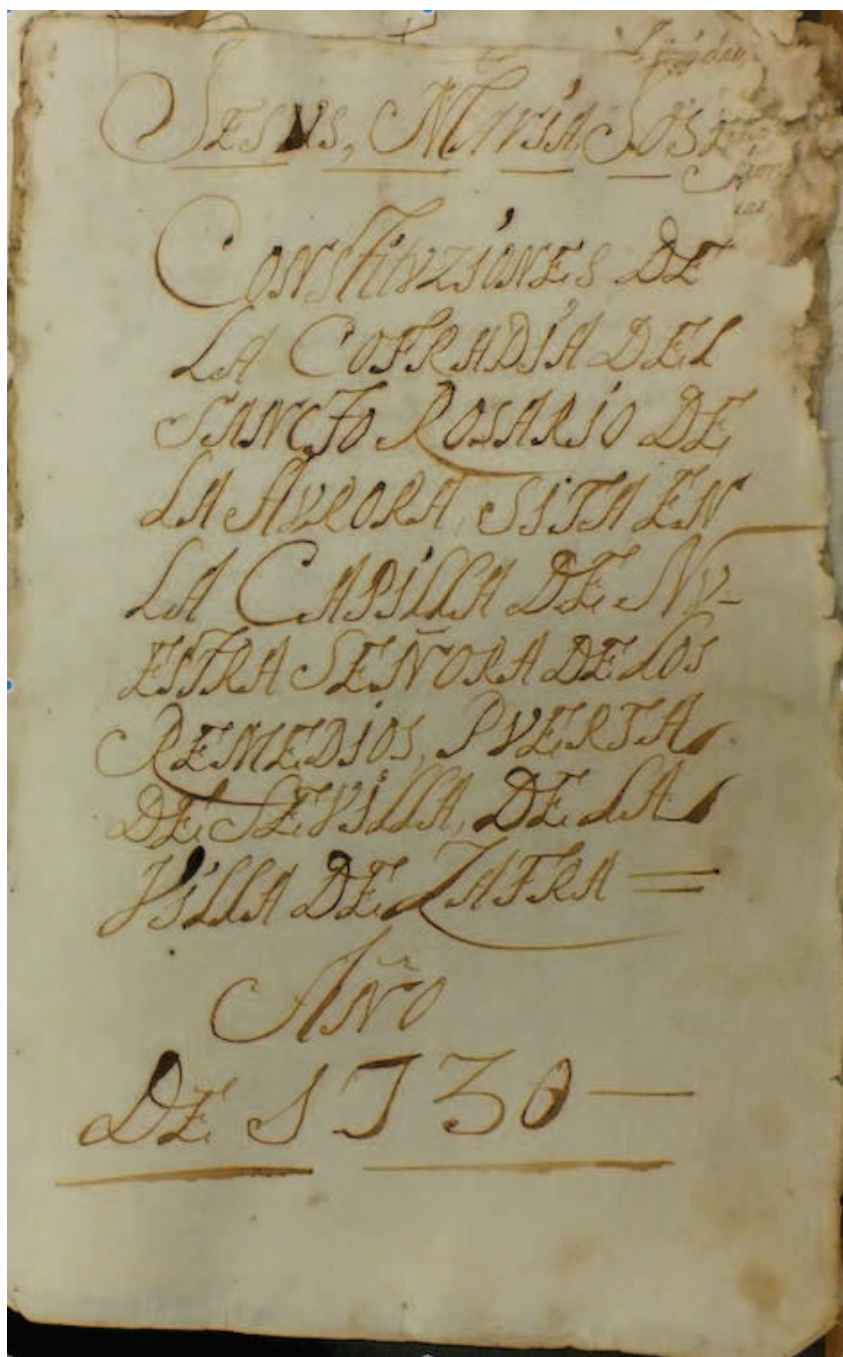 JESUS, MARIA, JOSE
CONSTITUZIONES DE
LA COFRADIA DEL
SANCTO ROSARIO DE
LA AVRORA, SITA EN
LA CAPILLA DE NV-
ESTRA SEÑORA DE LOS
REMEDIOS, PVERTA
DE SEVILLA, DE LA
VILLA DE ZAFRA =
AÑO
DE 1730 —